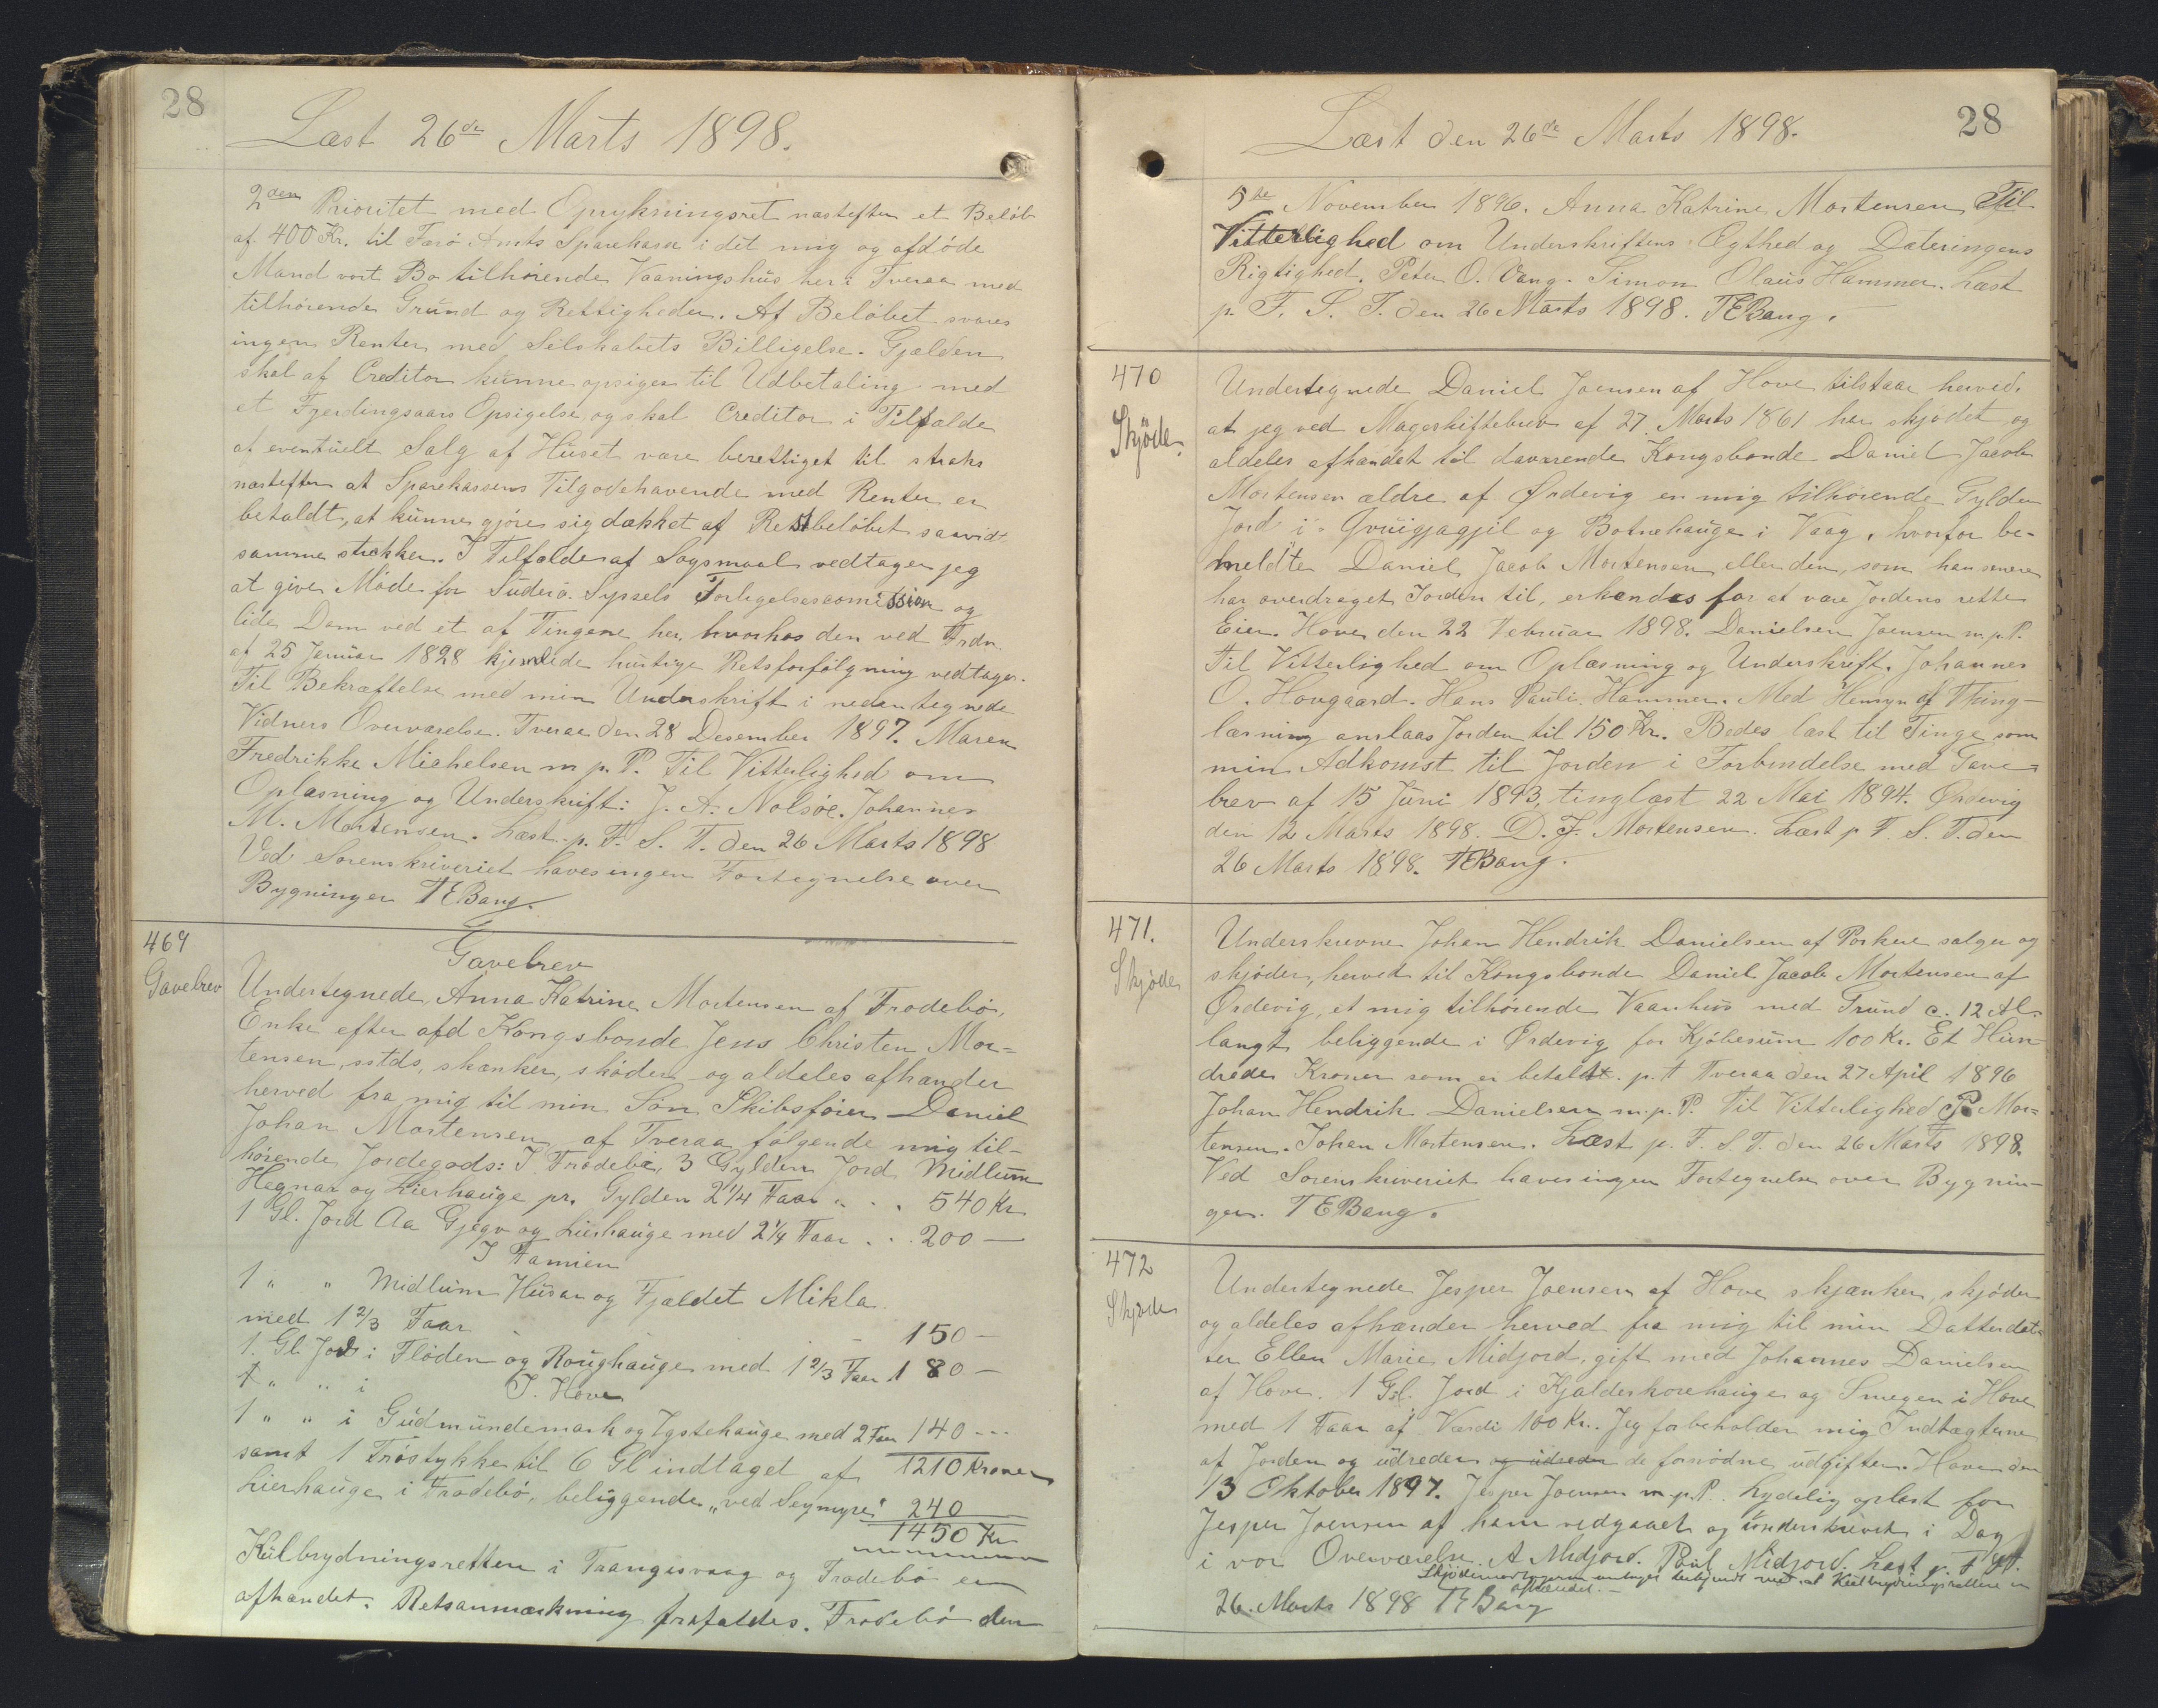 28
Læst 26de Marts 1898.
2den Prioritet med Oprykningsret næstefter et Beløb
af 400 Kr. til Færø Amts Sparekasse i det mig og afdøde
Mand vort Bo tilhørende Vaaningshus her i Tveraa med
tilhørende Grund og Rettigheder. Af Beløbet svares
ingen Renter med Selskabets Billigelse. Gjælden
skal af Creditor kunne opsiges til Udbetaling med
et Fjerdingsaars Opsigelse og skal Creditor i Tilfælde
af eventuelt Salg af Huset være berettiget til straks
næstefter at Sparekassens Tilgodehavende med Renter er
betaldt, at kunne gjøre sig dækket af Restbeløbet saavidt
samme strækker. I Tilfælde af Søgsmaal vedtager jeg
at give Møde for Suderø Syssels Forligelsescomission og
lide Dom ved et af Tingene her, hvorhos den ved Frdn.
af 25 Januar 1828 hjemlede hurtige Retsforfølgning vedtages.
Til Bekræftelse med min Underskrift i nedentegnede
Vidners Overværelse. Tveraa den 28 Desember 1897. Maren
Fredrikke Michelsen m. p. P. Til Vitterlighed om
Oplæsning og Underskrift: J. A. Nolsøe. Johannes
M. Mortensen. Læst p. F. S. T. den 26 Marts 1898
Ved Sorenskriveriet haves ingen Fortegnelse over
Bygninger TEBang.
469
Gavebrev
Gavebrev
Undertegnede Anna Katrine Mortensen af Frodebø,
Enke efter afd Kongsbonde Jens Christen Mor=
tensen, sstds, skænker, skøder og aldeles afhænder
herved fra mig til min Søn Skibsfører Daniel
Johan Mortensen af Tveraa følgende mig til-
hørende Jordegods: I Frodebø, 3 Gylden Jord Midlum
Hegnar og Lierhauge pr. Gylden 2 1/4 Faar . . . 540 Kr
1 Gl. Jord Aa Gjegv og Lierhauge med 2 1/4 Faar . . . 200 —
I Famien
1 " " Midlum Husar og Fjældet Mikla
med 1 2/3 Faar 150 —
1. Gl Jord i Fløden og Roughauge med 1 2/3 Faar 180 —
1 " " i I. Hove
1 " " i Gudmundemark og Ygstehauge med 2 Faar 140 ---
samt 1 Trøstykke til 6 Gl indtaget af 1210 Kroner
Lierhauge i Frodebø, beliggende "ved Seymyre" 240
1450 Kr
Kulbrydningsretten i Trangisvaag og Frodebø er
afhændet. Retsanmærkning frafaldes. Frodebø den
28
Læst den 26de Marts 1898.
5te November 1896. Anna Katrine Mortensen Til
Vitterlighed om Underskriftens Ægthed og Dateringens
Rigtighed. Peter O. Vang. Simon Olaus Hammer. Læst
p. F. S. T. den 26 Marts 1898. TEBang.
470
Skjøde.
Undertegnede Daniel Joensen af Hove tilstaar herved.
at jeg ved Mageskiftebrev af 27. Marts 1861 har skjødet og
aldeles afhændet til daværende Kongsbonde Daniel Jacob
Mortensen ældre af Ørdevig en mig tilhørende Gylden
Jord i Gruigjagjil og Botnehauge i Vaag, hvorfor be-
meldte Daniel Jacob Mortensen eller den, som han senere
har overdraget Jorden til, erkendes for at være Jordens rette
Eier. Hove den 22 Februar 1898. Danielsen Joensen m. p. P.
Til Vitterlighed om Oplæsning og Underskrift. Johannes
O. Hovgaard. Hans Pauli Hammer. Med Hensyn af Thing-
læsning anslaas Jorden til 150 Kr. Bedes læst til Tinge som
min Adkomst til Jorden i Forbindelse med Gave=
brev af 15 Juni 1893, tinglæst 22 Mai 1894. Ørdevig
den 12 Marts 1898. D. J. Mortensen. Læst p F. S. T. den
26 Marts 1898. TEBang.
471.
Skjøde
Underskrevne Johan Hendrik Danielsen af Porkere sælger og
skjøder, herved til Kongsbonde Daniel Jacob Mortensen af
Ørdevig, et mig tilhørende Vaanhus med Grund c. 12 Al.
langt beliggende i Ørdevig for Kjøbesum 100 Kr. Et Hun-
drede Kroner som er betaldt. p. t Tveraa den 27 April 1896
Johan Hendrik Danielsen m. p. P. Til Vitterlighed P. Mor=
tensen. Johan Mortensen. Læst p. F. S T. den 26 Marts 1898.
Ved Sorenskriveriet haves ingen Fortegnelse over Bygnin-
ger. TEBang.
472
Skjøde
Undertegnede Jesper Joensen af Hove skjænker, skjøder
og aldeles afhænder herved fra mig til min Datterdat=
ter Ellen Marie Midjord, gift med Johannes Danielsen
af Hove. 1 Gl. Jord i Kjalderskorehauge og Smegen i Hove
med 1 Faar af Værdi 100 Kr. Jeg forbeholder mig Indtægterne
af Jorden og udreder og udreder de fornødne udgifter. Hove den
13 Oktober 1897. Jesper Joensen m. p. P. Lydelig oplæst for
Jesper Joensen af ham vedgaaet og underskrevet i Dag
i vor Overværelse. A Midjord. Poul Midjord. Læst p. F S T.
Skjødemodtageren antages bekjendt med at Kulbrydningsretten er
afhændet. —
26. Marts 1898 TEBang